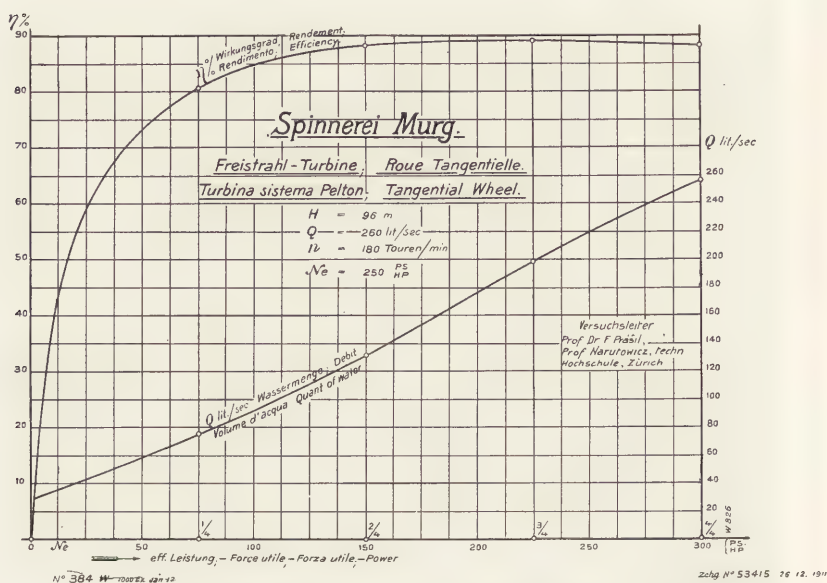 η%
90
80
70
60
50
40
30
20
10
0
% Wirkungsgrad, Rendement,
% Rendimento, Efficiency.
Spinnerei Murg.
Freistrahl-Turbine, Roue Tangentielle.
Turbina sistema Pelton, Tangential Wheel.
H = 96 m
Q = 260 lit/sec
n = 180 Touren/min
Ne = 250 PS HP
Q lit./sec
260
240
220
200
180
160
140
120
100
80
60
40
20
Versuchsleiter
Prof Dr F Präsil,
Prof Narutowicz, techn
Hochschule, Zürich
Q lit./sec Wassermenge, Debit
Volume d'acqua Quant of water
1/4
2/4
3/4
4/4
W 826
0 Ne 50 100 150 200 250 300 PS. HP
eff. Leistung, - Force utile, - Forza utile, - Power
Nº 384
Zchg Nº 53415 26 12. 1911